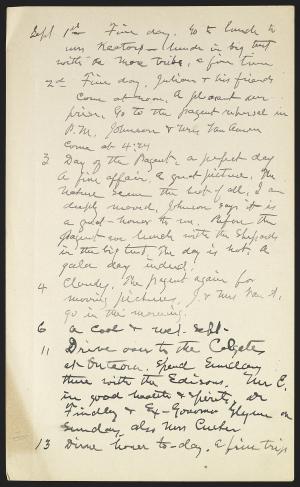 Sept 1st Fine day. Go to lunch to
Mrs Nestors - lunch in big tent
with the whole tribe, a fine time
2d Fine day. Julian & his friends
come at noon. A pleasant sur
prise. Go to the pagent rehersel in
P.M. Johnson & Mrs Van Amee
come at 4:24
3 Day of the Pagent - a perfect day
A fine affair, a great picture. The
nature scene the best of all, I am
deeply moved, Johnson says it is
a great honor to me. Before the
pagent we lunch with the Shepards
in the big tent. The day is hot, A
gala day indeed.
4 Cloudy. The pagent again for
moving pictures, J. & Mrs Van A.
go in the morning.
6 A cool & wet Sept.
11 Drive over to the Colgates
at Onteora. Spend Sunday
there with the Edisons. Mr E.
in good health & spirits, Dr
Findley & Ex-Governor Glynn on
Sunday, also Mrs Custer
13 Drive home to-day. A fine trip